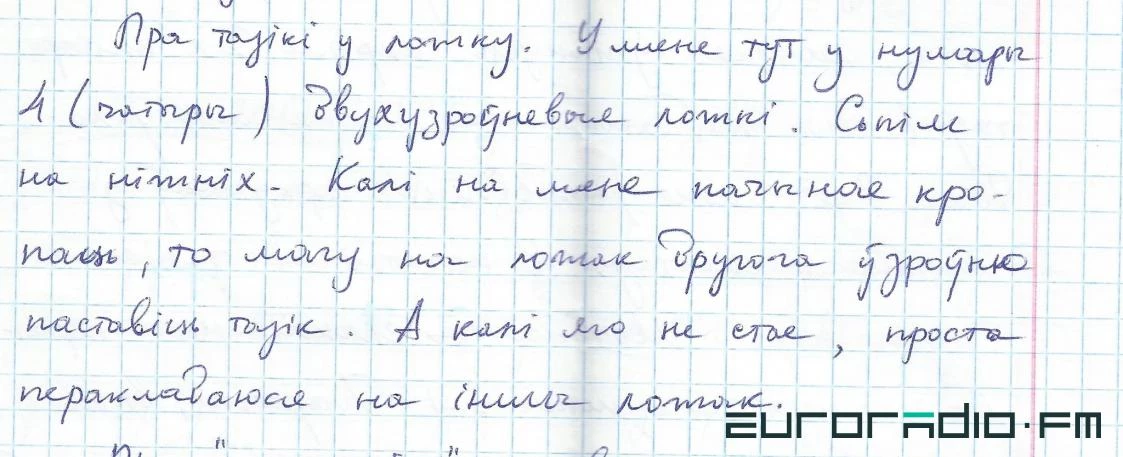 Пра тазікі у ложку. У мене тут у нумары
4 (чатыры) двухузроўневыя ложкі. Сьпім
на ніжніх. Калі на мене пачынае кро-
паць, то магу на ложак другога ўзроўню
паставіць тазік. А калі яго не стае, проста
перакладаюся на іншы ложак.
EURORADIO.FM